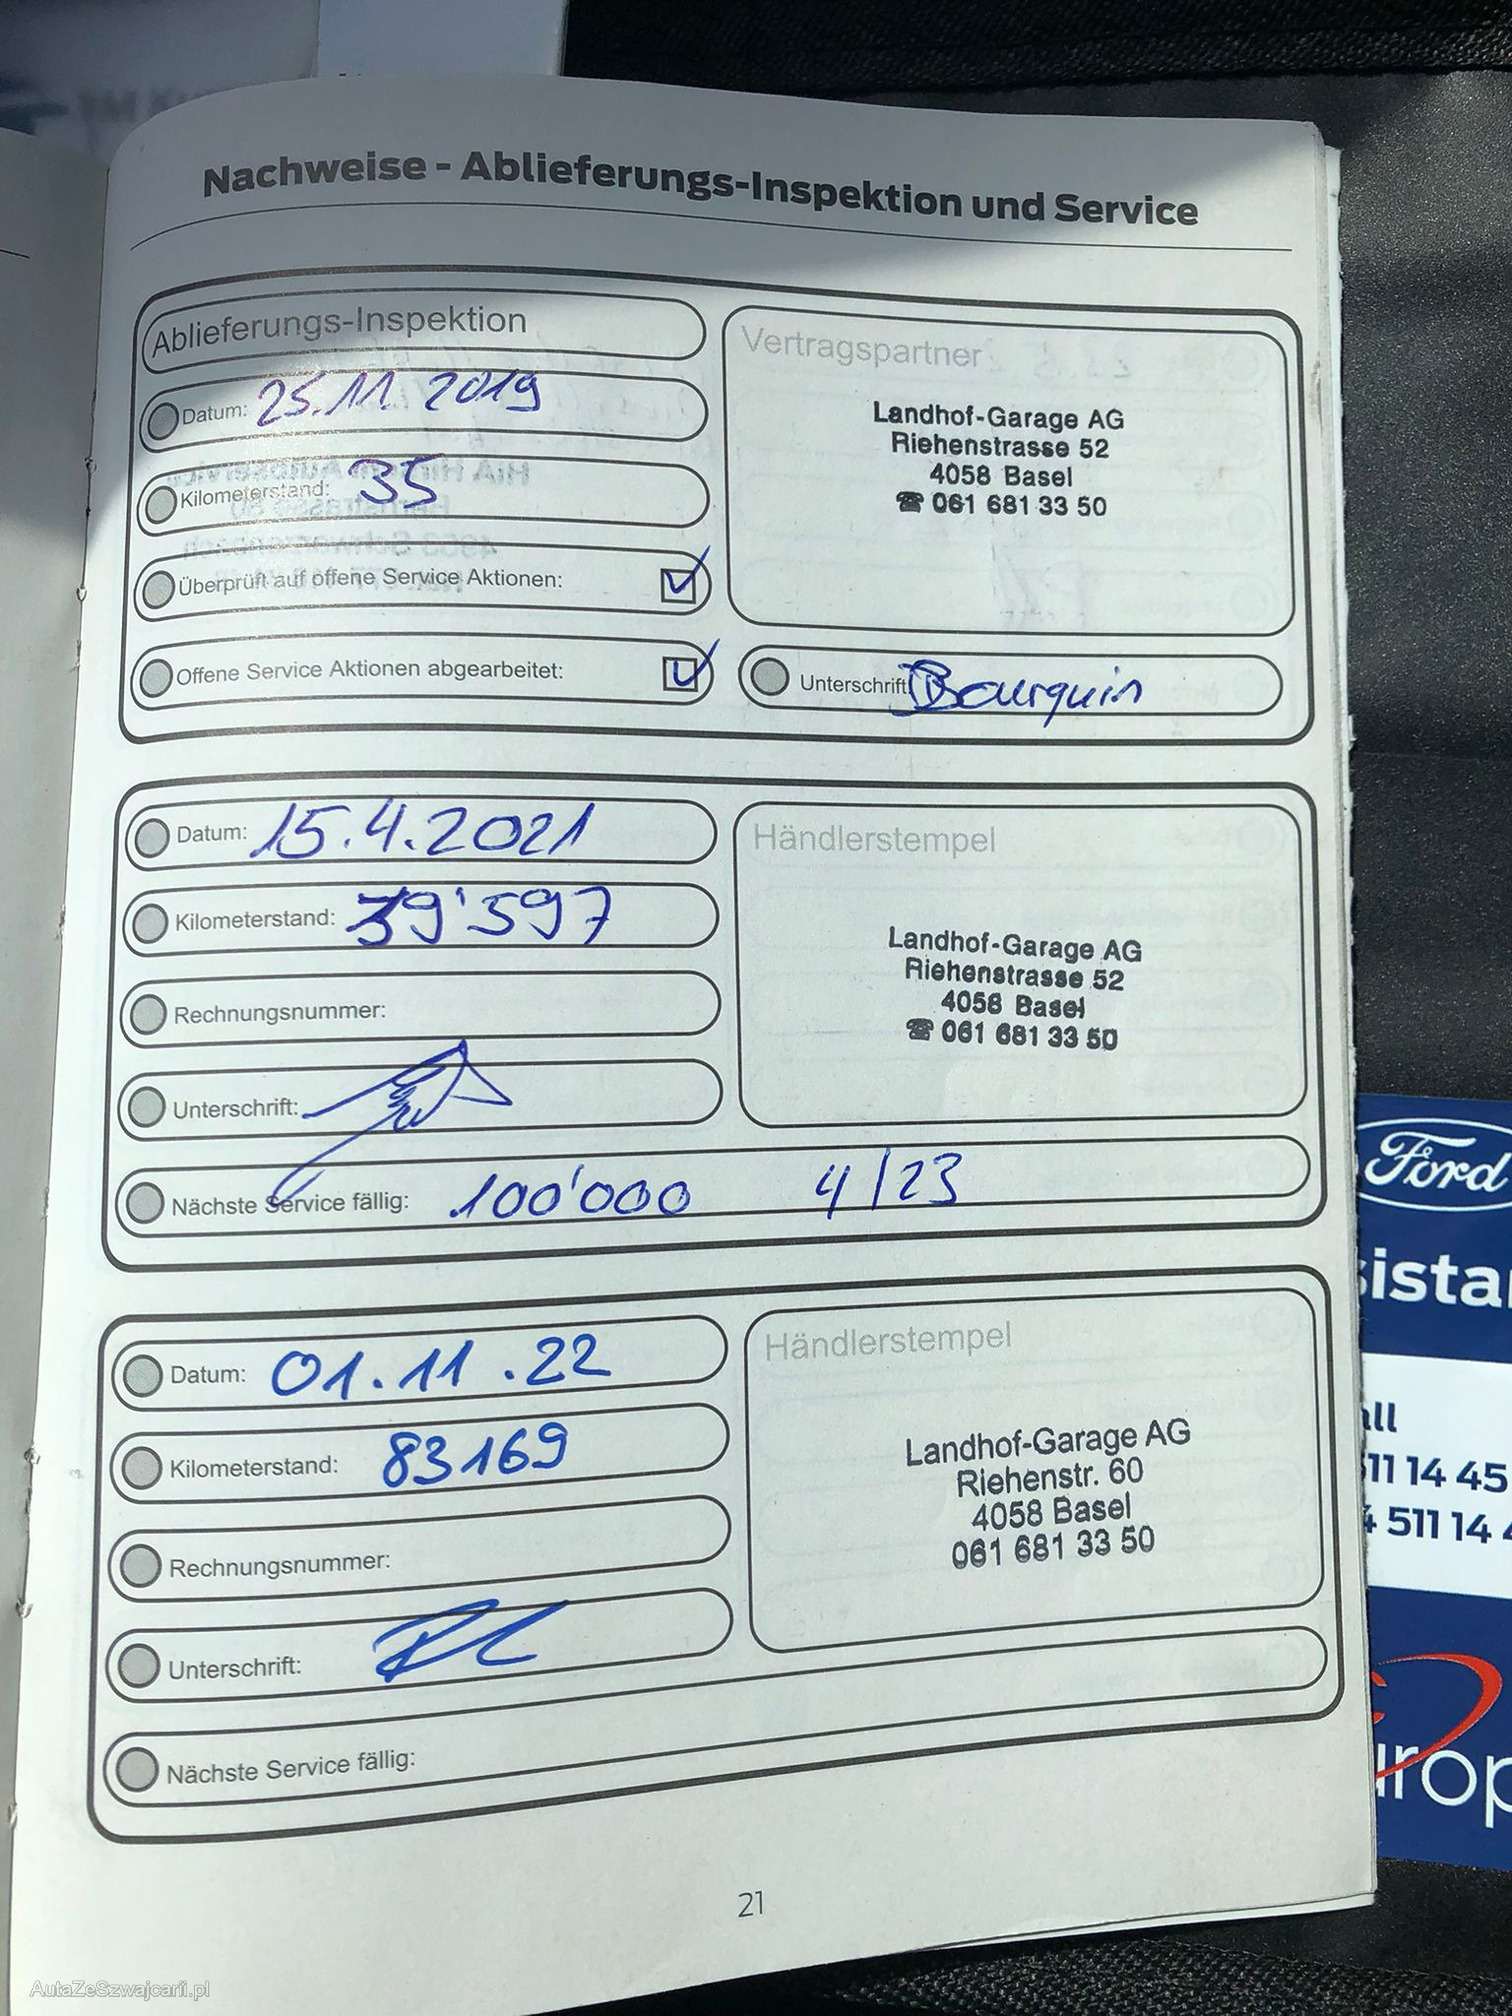 Nachweise - Ablieferungs-Inspektion und Service
Ablieferungs-Inspektion
Datum: 25.11.2019
Kilometerstand: 35
Überprüft auf offene Service Aktionen:
Offene Service Aktionen abgearbeitet:
Vertragspartner
Landhof-Garage AG
Riehenstrasse 52
4058 Basel
☎ 061 681 33 50
Unterschrift Bourquin
Datum: 15.4.2021
Kilometerstand: 39'597
Rechnungsnummer:
Unterschrift:
Händlerstempel
Landhof-Garage AG
Riehenstrasse 52
4058 Basel
☎ 061 681 33 50
Nächste Service fällig: 100'000 4/23
Datum: 01.11.22
Kilometerstand: 83169
Rechnungsnummer:
Unterschrift:
Händlerstempel
Landhof-Garage AG
Riehenstr. 60
4058 Basel
061 681 33 50
Nächste Service fällig:
21
Ford
11 14 45
511 14
AutaZeSzwajcarii.pl